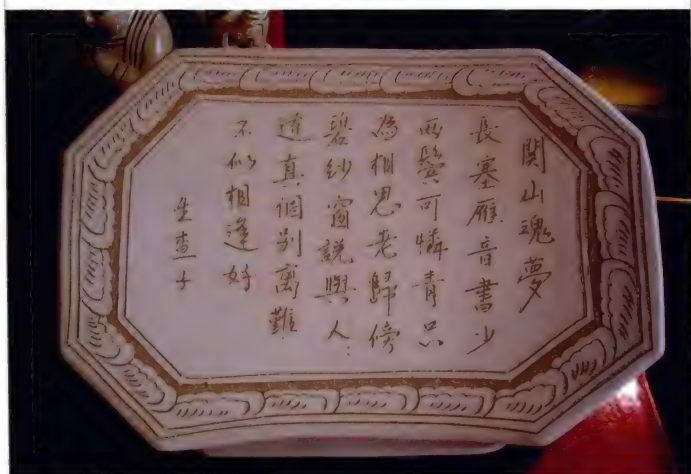 関山魂夢
長塞雁音書少
两鬓可憐青只
為相思老歸傍
碧紗窗説與人
道真個別离難
不似相逢好
生查子